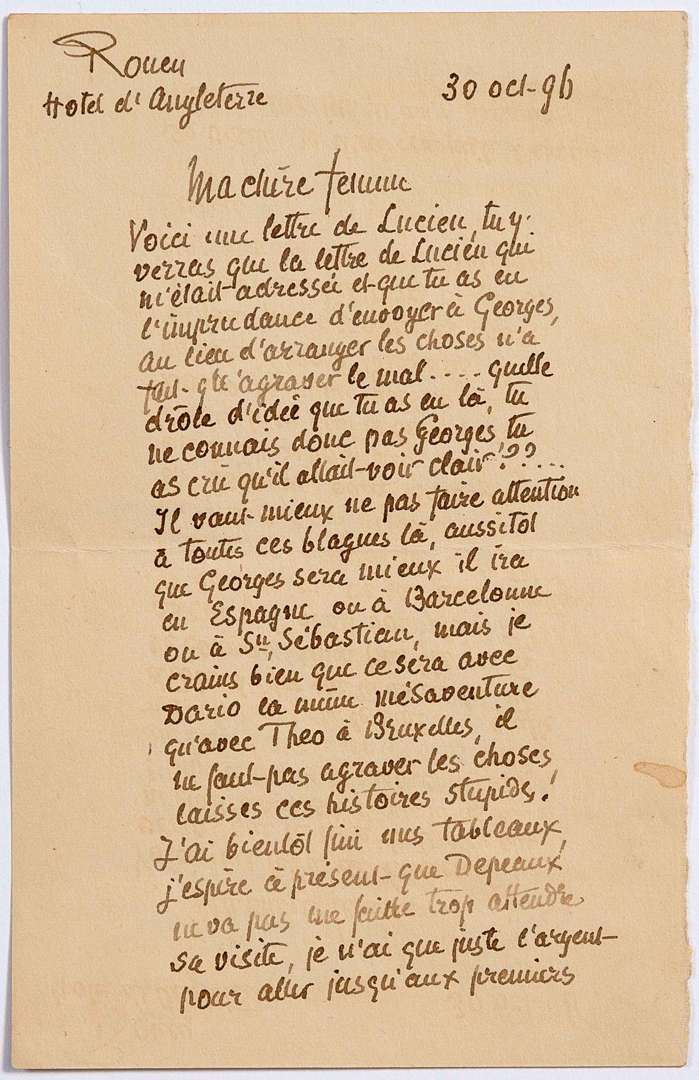 Rouen
Hotel d'Angleterre
30 oct-96
Ma chère femme
Voici une lettre de Lucien, tu y
verras que la lettre de Lucien qui
m'était adressée et que tu as eu
l'imprudance d'envoyer à Georges,
au lieu d'arranger les choses n'a
fait qu'agraver le mal.... quelle
drôle d'ideé que tu as eu là, tu
ne connais donc pas Georges, tu
as cru qu'il allait voir clair!??...
Il vaut mieux ne pas faire attention
à toutes ces blagues là, aussitôt
que Georges sera mieux il ira
en Espagne ou à Barcelonne
ou à Sn Sébastien, mais je
crains bien que ce sera avec
Dario la même mésaventure
qu'avec Theo à Bruxelles, il
ne faut pas agraver les choses,
laisses ces histoires stupids!
J'ai bientôt fini mes tableaux,
j'espire à présent que Depeaux
ne va pas me faire trop attendre
sa visite, je n'ai que juste l'argent
pour aller jusqu'aux premiers